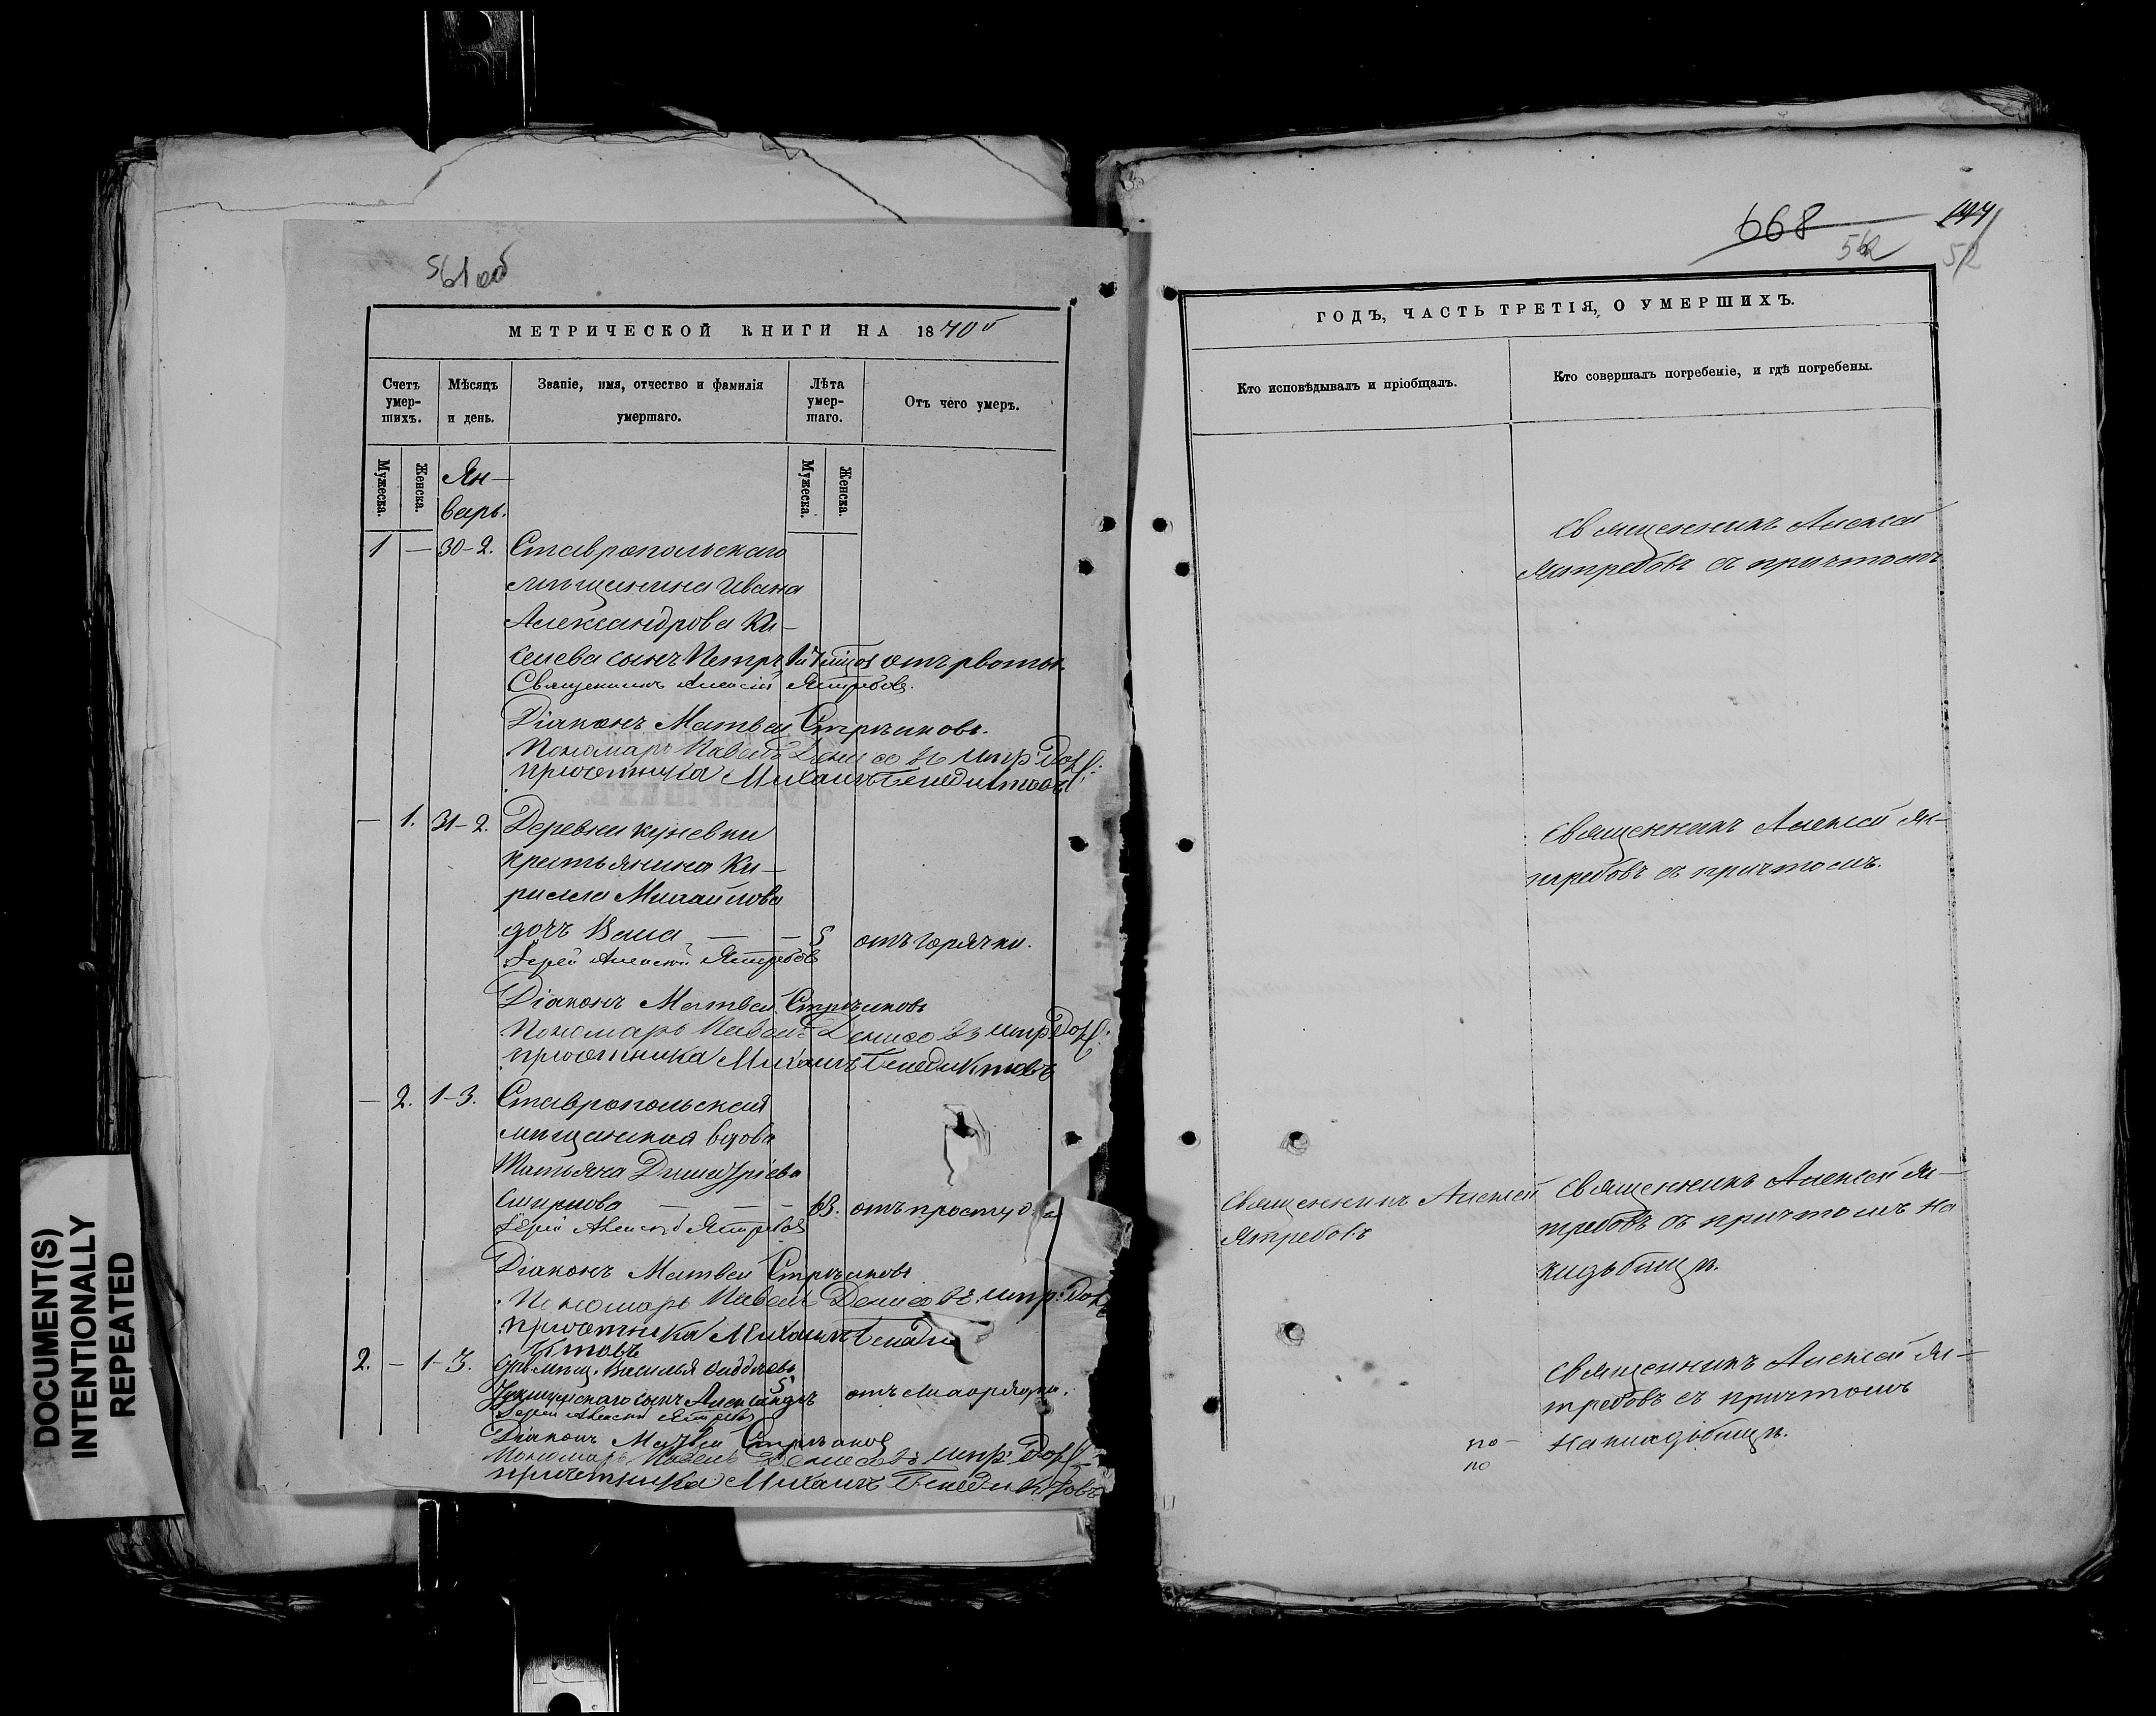 561 об
МЕТРИЧЕСКОЙ КНИГИ НА 1870й
Счетъ умер- шихъ.
Мѣсяцъ и день.
Званіе, имя, отчество и фамилія умершаго.
Лѣта умер- шаго.
Отъ чего умеръ.
Мужеска.
Женска.
Ян-
варь.
Мужеска.
Женска.
1 — 30-2. Ставропольскаго
мѣщанина Ивана
Александрова Ки-
селева сынъ Петръ отъ рвоты.
Священникъ Алексій Ястребовъ.
Діаконъ Матвей Стрѣлковъ.
Пономарь Павелъ Денисовъ испр. дол.
причетника Михаилъ Бенедиктовъ
— 1. 31-2. Деревни куневки
крестьянина Ки-
рилла Михайлова
дочь — — 5 отъ горячки.
Іерей Алексій Ястребовъ
Діаконъ Матвей Стрѣлковъ
Пономарь Павелъ Денисовъ испр. дол.
причетника Михаилъ Бенедиктовъ
— 2. 1-3. Ставропольская
мѣщанская вдова
Татьяна Димитріева
Смирнова — — — 63. отъ простуды
Іерей Алексій Ястребовъ
Діаконъ Матвей Стрѣлковъ
Пономарь Павелъ Денисовъ испр. дол.
причетника Михаилъ Бенеди
ктовъ
2. — 1-3. Василья
сынъ Александръ 5 отъ
Іерей Алексій Ястребовъ
Діаконъ Матвей Стрѣлковъ
Пономарь Павелъ Денисовъ испр. дол.
причетника Михаилъ Бенедиктовъ
668
562
52
ГОДЪ, ЧАСТЬ ТРЕТІЯ, О УМЕРШИХЪ.
Кто исповѣдывалъ и пріобщалъ.
Кто совершалъ погребеніе, и гдѣ погребены.
Священникъ Алексей
Ястребовъ съ причтомъ
Священникъ Алексей Яс-
требовъ съ причтомъ.
Священникъ Алексей
Ястребовъ
Священникъ Алексей Яс-
требовъ съ причтомъ на
кладбищѣ.
Священникъ Алексей Яс-
требовъ съ причтомъ
на кладбищѣ.
по-
по
DOCUMENT(S)
INTENTIONALLY
REPEATED